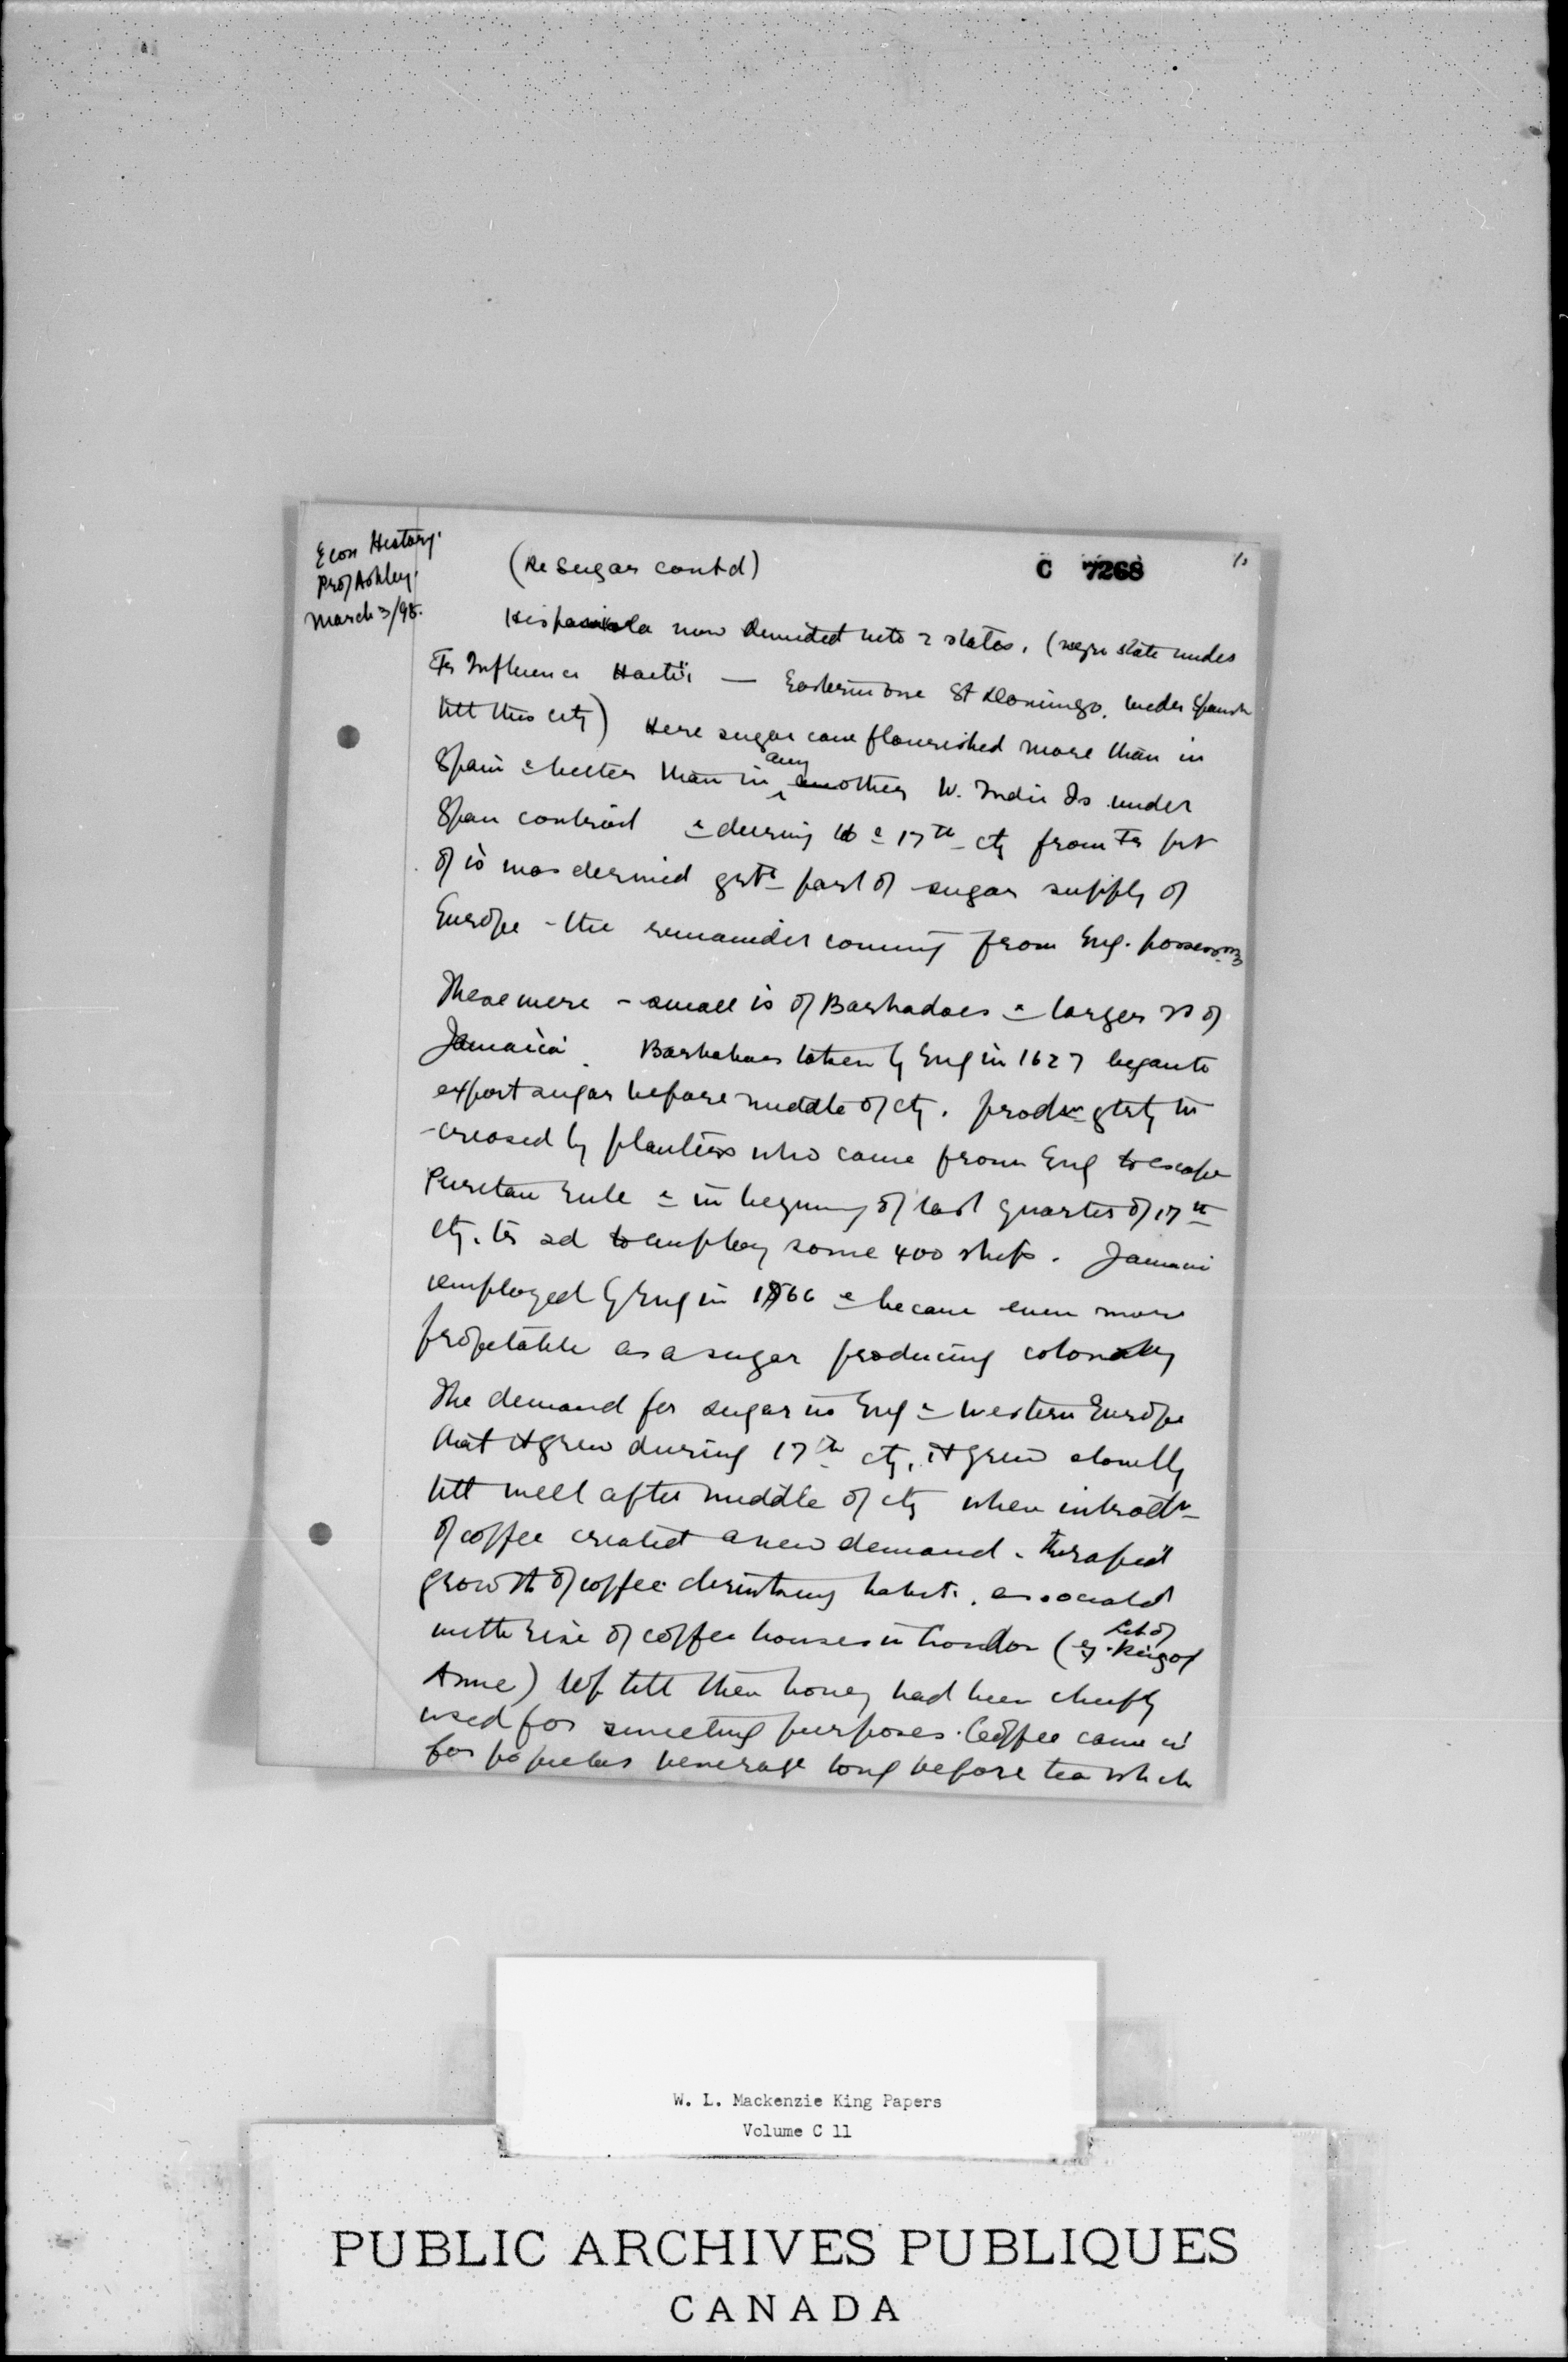 Econ History.
Prof Ashley.
March 3/98.
(Re Sugar contd)
C 7268
Hispaniola now divided into 2 states. (negro state under
Fr Influence Haeti — Eastern one St Domingo. under Spanish
till this cty) Here sugar cane flourished more than in
Spain & better than in any other W. India Is under
Span control & during 16 & 17th cty from Fr prt
of is was derived grtr part of sugar supply of
Europe - the remainder coming from Eng. possessns
These were - small is of Barbadoes & larger is of
Jamaica. Barbadoes taken by Eng in 1627 began to
export sugar before middle of cty. prodn gtly in
-creased by planters who came from Eng to escape
Puritan rule & in beging of last quarter of 17th
cty. is sd to employ some 400 ships. Jamaici
employed by Eng in 1566 & became even more
profitable as a sugar producing colony
The demand for sugar in Eng & Western Europe
that it grew during 17th cty, it grew slowly
till well after middle of cty when introdtn
of coffee created a new demand. the rapid
growth of coffee drinking habit. associated
with rise of coffee houses in London (eg. Lit of Reign of
Anne) Up till then honey had been chiefly
used for sweeting purposes. Coffee came in
for popular beverage long before tea which
W. L. Mackenzie King Papers
Volume C 11
PUBLIC ARCHIVES PUBLIQUES
CANADA